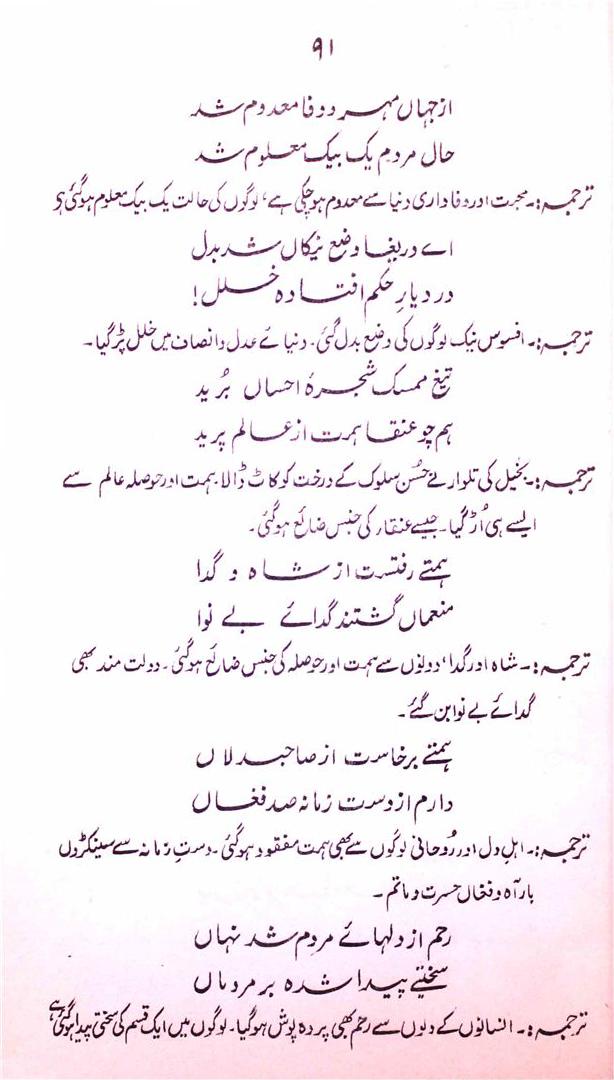 ۹۱
از جہاں مہر و وفا معدوم شد
حال مردم یک بیک معلوم شد
ترجمہ:۔ محبت اور وفاداری دنیا سے معدوم ہو چکی ہے، لوگوں کی حالت یک بیک معلوم ہو گئی ہے
اے دریغا وضع نیکاں شد بدل
در دیارِ حکم افتادہ خلل!
ترجمہ:۔ افسوس نیک لوگوں کی وضع بدل گئی۔ دنیائے عدل و انصاف میں خلل پڑ گیا۔
تیغ ممسک شجرۂ احساں بُرید
ہم چو عنقا ہمت از عالم پرید
ترجمہ:۔ بخیل کی تلوار نے حُسن سلوک کے درخت کو کاٹ ڈالا۔ ہمت اور حوصلہ عالم سے
ایسے ہی اُڑ گیا۔ جیسے عنقار کی جنس ضائع ہو گئی۔
ہمتے رفتست از شاہ و گدا
منعماں گشتند گدائے بے نوا
ترجمہ:۔ شاہ اور گدا، دونوں سے ہمت اور حوصلہ کی جنس ضائع ہو گئی۔ دولت مند بھی
گدائے بے نوا بن گئے۔
ہمتے برخاست از صاحبدلاں
دارم از دست زمانہ صد فغاں
ترجمہ:۔ اہل دل اور رُوحانی لوگوں سے بھی ہمت مفقود ہو گئی۔ دستِ زمانہ سے سینکڑوں
بار آہ و فغاں حسرت و ماتم۔
رحم از دلہائے مردم شد نہاں
سختیے پیدا شدہ بر مردماں
ترجمہ:۔ انسانوں کے دلوں سے رحم بھی پردہ پوش ہو گیا۔ لوگوں میں ایک قسم کی سختی پیدا ہو گئی ہے